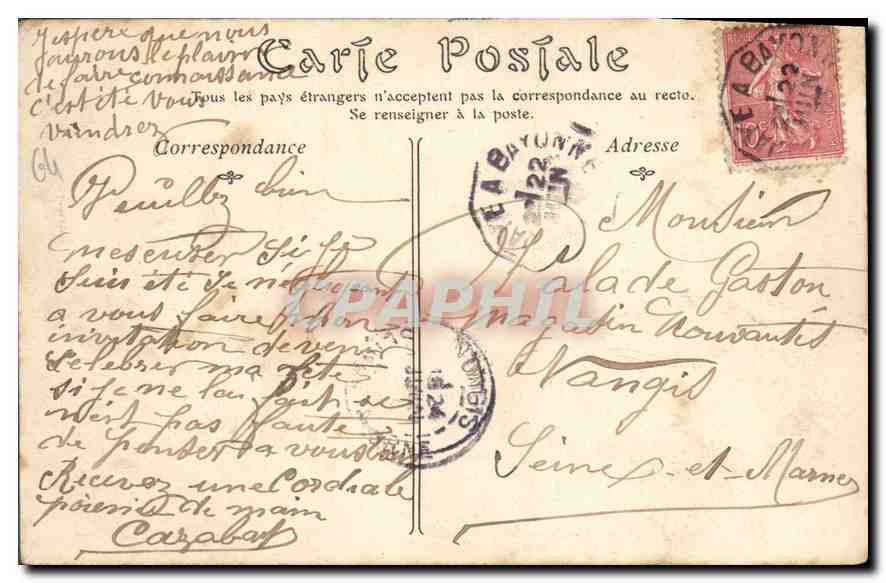 J'espere que nous
aurons le plaisir
de faire connaissance
c'est été vous
viendrez
Carte Postale
Tous les pays étrangers n'acceptent pas la correspondance au recto.
Se renseigner à la poste.
Correspondance
Adresse
64
Veuillez bien
mescuser si je
suis été si négligent
a vous faire
invitation de venir
selebrer ma fête
si je ne la fait se
n'est pas faute
de penser a vous
Recevez une Cordiale
poienié de main
Cazabat
E A BAYONNE
22
JUIN
E A BAYONNE
22
JUIN
NANGIS
24
CPAPHIL
Monsieur
Malade Gaston
Magasin Nouvautés
Nangis
Seine-et-Marne